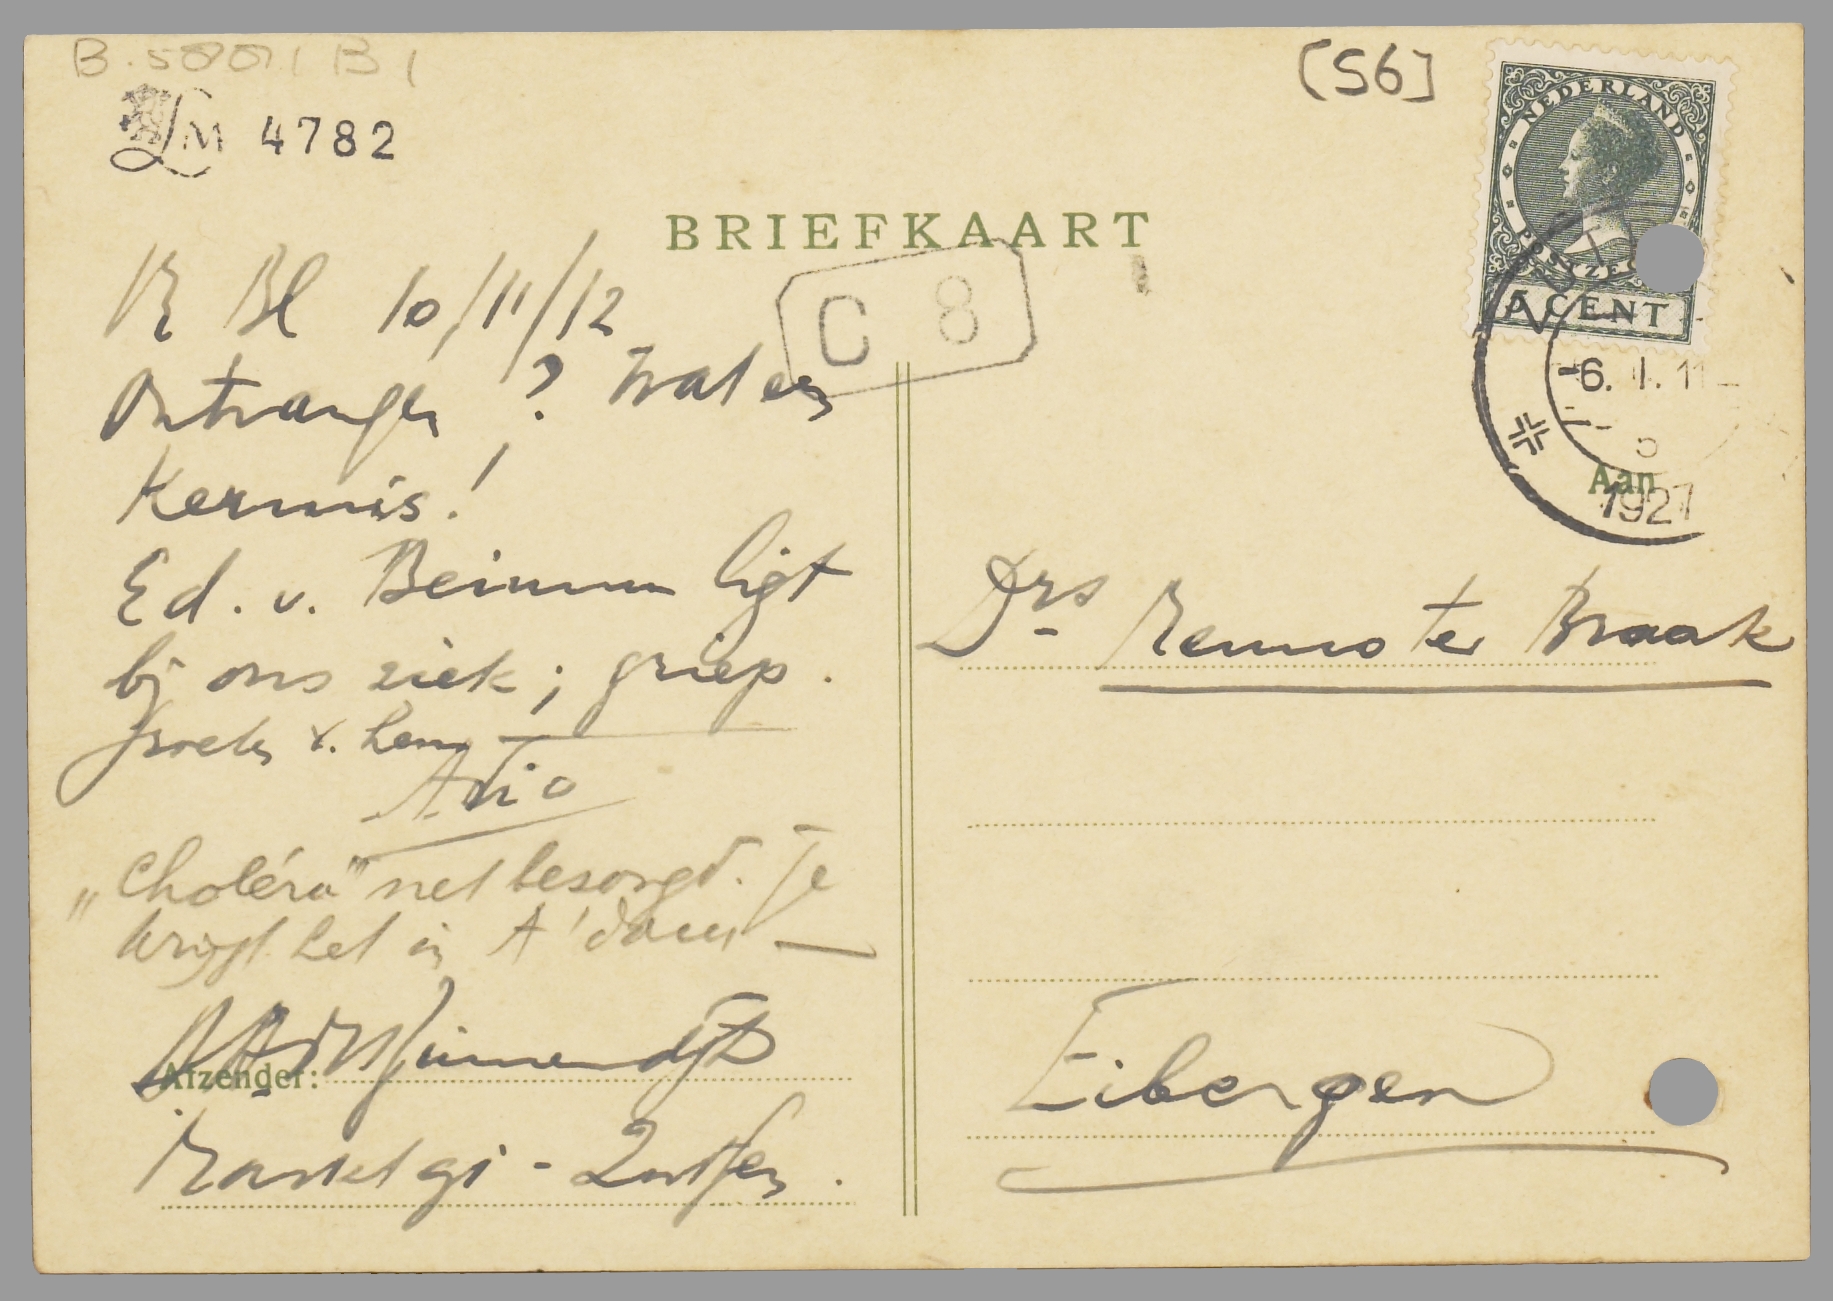 B. 5001 B 1
LM 4782
[S6]
NEDERLAND
POSTZEGEL
5 CENT
BRIEFKAART
C 8
-6. I. 11-
1927
Bl 10/11/12
Ontvangen ? Wat een
Kermis!
Ed. v. Beinum ligt
bij ons ziek; griep.
Groeten v. hem
Ario
„Choléra" net bezorgd. Je
krijgt het in A'dam —
Afzender:
Markt 91 - Zutfen.
Aan
Drs Menno ter Braak
Eibergen